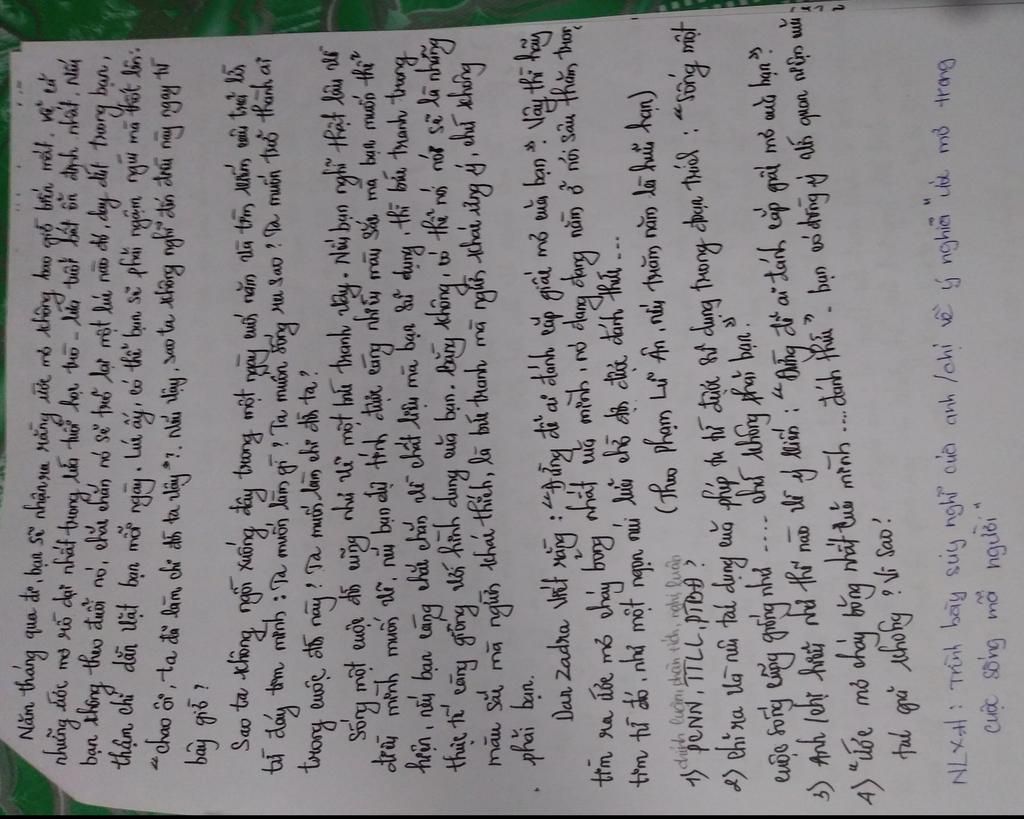 Năm tháng qua đi, bạn sẽ nhận ra rằng ước mơ không bao giờ biến mất. Kể cả
những ước mơ rồ dại nhất trong lứa tuổi học trò - lứa tuổi bất ổn định nhất. Nếu
bạn không theo đuổi nó, chắc chắn nó sẽ trở lại một lúc nào đó, day dứt trong bạn,
thậm chí dằn vặt bạn mỗi ngày. Lúc ấy, có thể bạn sẽ phải ngậm ngùi mà thốt lên:
"chao ôi, ta đã làm chi đời ta vậy"?. Nếu vậy, sao ta không nghĩ đến điều này ngay từ
bây giờ?
Sao ta không ngồi xuống đây trong một ngày cuối năm và tìm kiếm câu trả lời
từ đáy tim mình: Ta muốn làm gì? Ta muốn sống ra sao? Ta muốn trở thành ai
trong cuộc đời này? Ta muốn làm chi đời ta?
Sống một cuộc đời cũng như vẽ một bức tranh vậy. Nếu bạn nghĩ thật lâu về
điều mình muốn vẽ, nếu bạn dự tính được càng nhiều màu sắc mà bạn muốn thể
hiện, nếu bạn càng chắc chắn về chất liệu mà bạn sử dụng, thì bức tranh trong
thực tế càng giống với hình dung của bạn. Bằng không, có thể nó sẽ là những
màu sắc mà người khác thích, là bức tranh mà người khác ưng ý, chứ không
phải bạn.
Dan Zadra viết rằng: "Đừng để ai đánh cắp giấc mơ của bạn". Vậy thì hãy
tìm ra ước mơ cháy bỏng nhất của mình, nó đang nằm ở nơi sâu thẳm trong
tim ta đó, như một ngọn núi lửa chờ đợi được đánh thức ...
(Theo Phạm Lữ Ân, nếu trăm năm là hữu hạn)
1) PCNN, TTLL, PTBĐ?
chính luận phân tích, nghị luận
2) chỉ ra và nêu tác dụng của phép tu từ được sử dụng trong đoạn trích: "Sống một
cuộc sống cũng giống như ..... chứ không phải bạn".
3) Anh/chị hiểu như thế nào về ý kiến: "Đừng để ai đánh cắp giấc mơ của bạn".
4) "Ước mơ cháy bỏng nhất của mình .... đánh thức" - bạn có đồng ý với quan niệm của
tác giả không? Vì sao?
NLXH: Trình bày suy nghĩ của anh/chị về ý nghĩa "ước mơ trong
cuộc sống mỗi người"